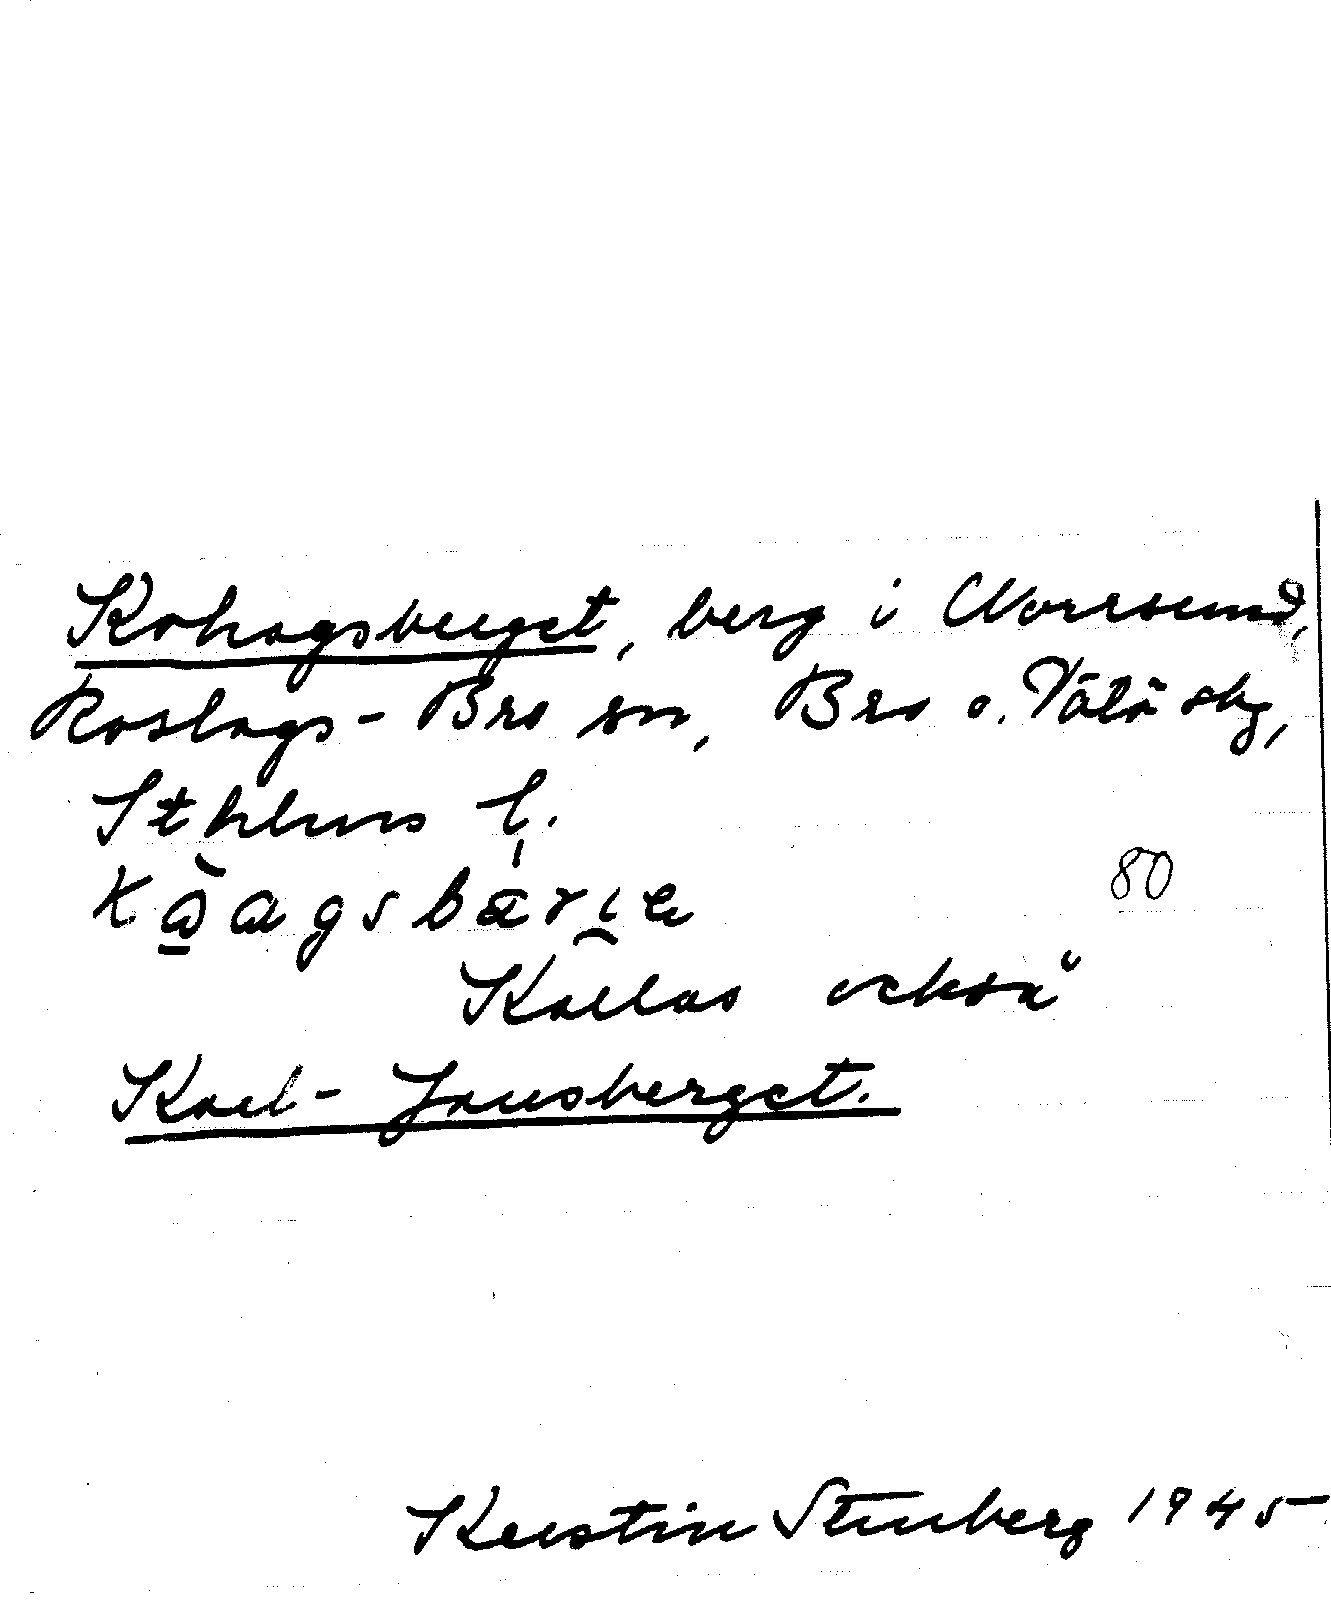 Kohagsberget, berg i Norrsund,
Roslags-Bro sn, Bro o. Vätö skg,
Sthlms l.
80
Kallas också
Karl-Jansberget.
Kerstin Stenberg 1945